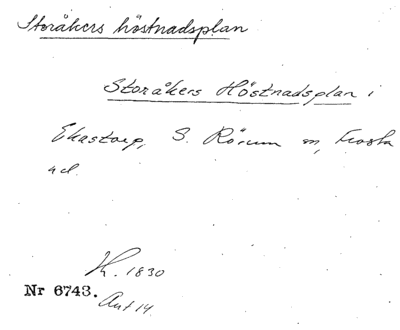 Storåkers höstnadsplan
Storåkers Höstnadsplan i
Ekastorp, S. Rörum m, Frosta
hd.
K. 1830
Nr 6743.
Aut 14.